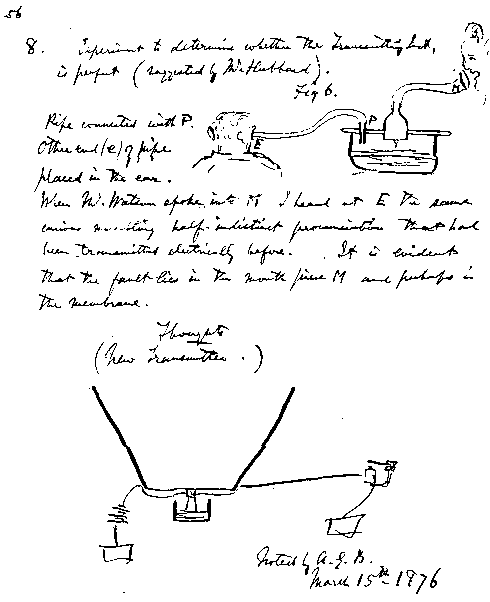 56
8. Experiment to determine whether the Transmitting Inst.
is perfect (suggested by Mr. Hubbard).
Fig 6.
Pipe connected with P.
Other end (e) of pipe
placed in the ear.
When Mr. Watson spoke into M I heard at E the same
curious half-indistinct pronunciation that had
been transmitted electrically before. It is evident
that the fault lies in the mouth piece M and perhaps in
the membrane.
Thoughts
(New Transmitter.)
P
E
M
Noted by A. G. B.
March 15th 1876